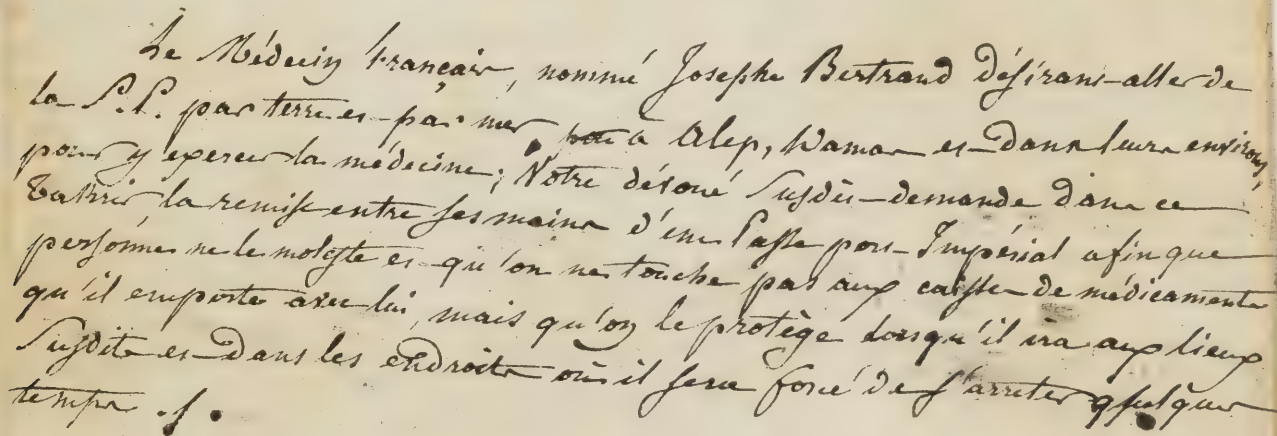 Le Médecin français, nommé Josephe Bertrand Désirant aller de
la S.P. par terre et par mer, à Alep, Hama et Dans leurs environs,
pour y exercer la médecine; Notre dévoué Susdit demande dans ce
Takrir, la remise entre ses mains d'un Passe port Impérial afin que
personne ne le moleste et qu'on ne touche pas aux caisses de médicaments
qu'il emporte avec lui, mais qu'on le protège lorsqu'il ira aux lieux
Susdits et Dans les endroits où il sera forcé de s'arreter quelque
temps ./.